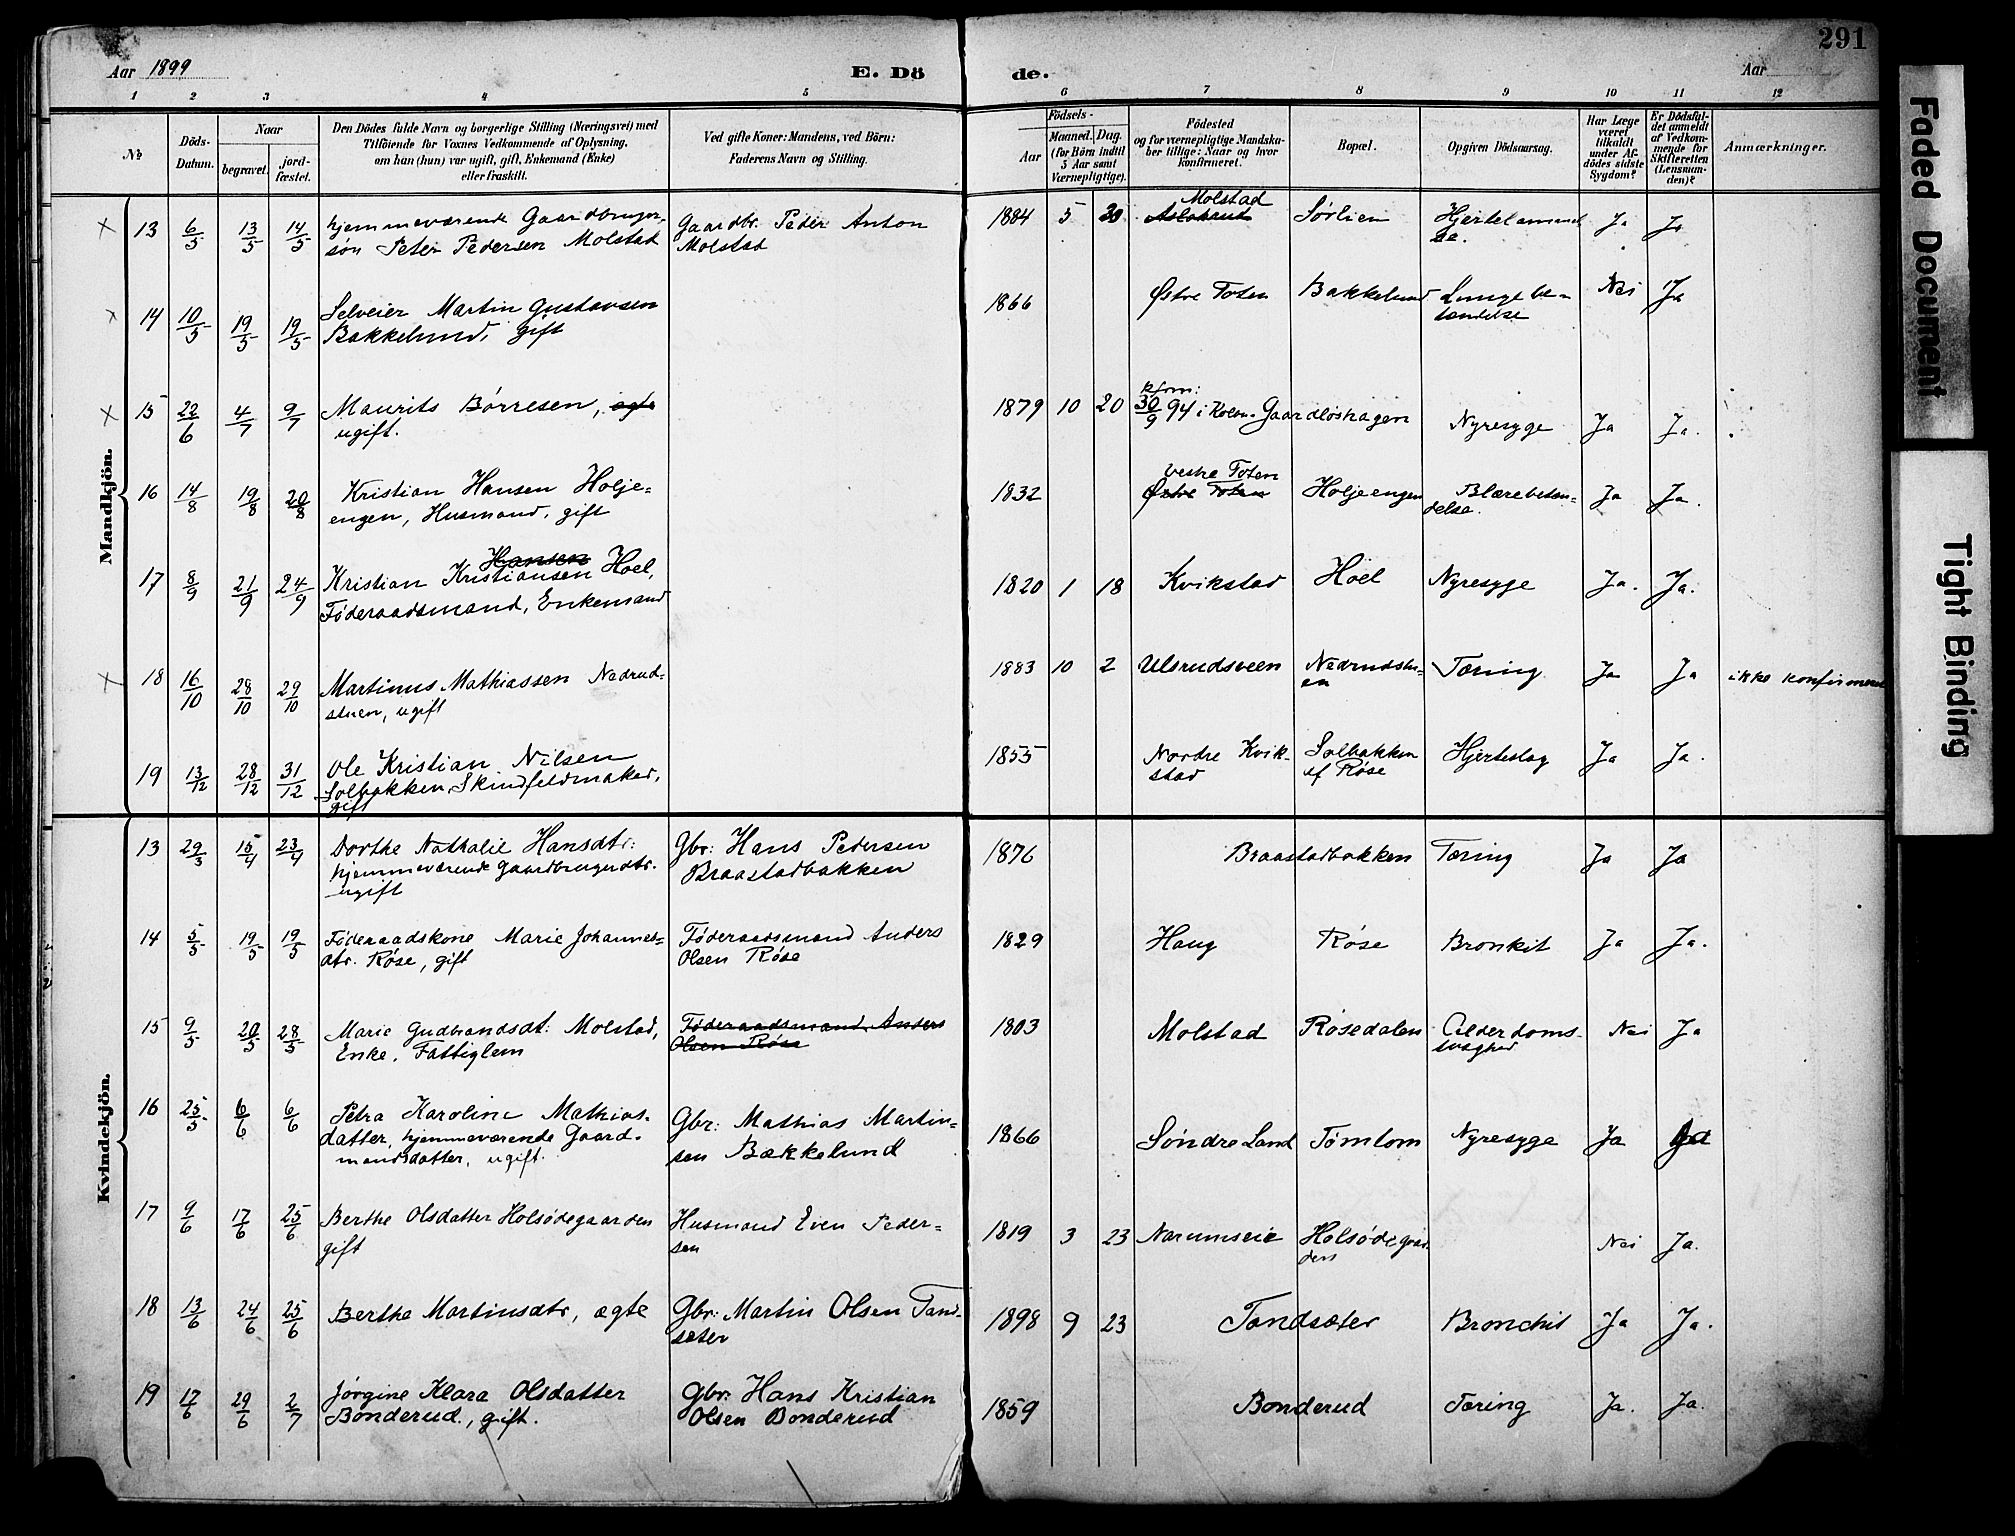 291
Aar 1899
E. Dö
de.
Aar
1 2 3 4 5 6 7 8 9 10 11 12
№
Döds-
Datum.
Naar
begravet.
jord-
fæstet.
Den Dödes fulde Navn og borgerlige Stilling (Næringsvei) med
Tilföiende for Voxnes Vedkommende af Oplysning,
om han (hun) var ugift, gift, Enkemand (Enke)
eller fraskilt.
Ved gifte Koner: Mandens, ved Börn:
Faderens Navn og Stilling.
Födsels-
Aar
Maaned. Dag.
(for Börn indtil
5 Aar samt
Værnepligtige).
Födested
og for værnepligtige Mandska-
ber tillige: Naar og hvor
konfirmeret.
Bopæl.
Opgiven Dödsaarsag.
Har Læge
været
tilkaldt
under Af-
dödes sidste
Sygdom?
Er Dödsfal-
det anmeldt
af Vedkom-
mende for
Skifteretten
(Lensman-
den)?
Anmærkninger.
Mandkjön.
13 6/5 13/5 14/5 hjemmeværende Gaardbruger-
søn Peter Pedersen Molstad
Gaardbr. Peder Anton
Molstad
1884 5 30 Molstad Sørlien Hjertelammel
se. Ja Ja
14 10/5 19/5 19/5 Selveier Martin Gustavsen
Bakkelund, gift
1866 Østre Toten Bakkelund Lungebe-
tændelse Nei Ja
15 22/6 4/7 9/7 Maurits Børresen, ægte
ugift.
1879 10 20 kfrm:
30/9 94 i Kolbu. Gaardløshagen Nyresyge Ja Ja.
16 14/8 19/8 20/8 Kristian Hansen Holje-
engen, Husmand, gift
1832 Vestre Toten
Østre Toten Holjeengen Blærebetæn-
delse. Ja Ja.
17 8/9 21/9 24/9 Hansen
Kristian Kristiansen Hoel,
Føderaadsmand, Enkemand
1820 1 18 Kvikstad Hoel Nyresyge Ja. Ja.
18 16/10 28/10 29/10 Martinus Mathiassen Nedrud-
stuen, ugift
1883 10 2 Ulsrudsveen Nedrudstu-
en Tæring Ja Ja ikke konfirmeret
19 13/12 28/12 31/12 Ole Kristian Nilsen
Solbakken, Skindfeldmaker,
gift
1855 Nordre Kvik-
stad Solbakken
uf Røse Hjerteslag Ja Ja.
Kvindekjön.
13 29/3 15/4 23/4 Dorthe Nathalie Hansdtr:
hjemmeværende Gaardbrugerdtr.
ugift
Gbr: Hans Pedersen
Braastadbakken
1876 Braastadbakken Tæring Ja Ja
14 5/5 19/5 19/5 Føderaadskone Marie Johannes-
dtr. Røse, gift
Føderaadsmand Anders
Olsen Røse
1829 Haug Røse Bronkit Ja Ja.
15 9/5 20/5 28/5 Marie Gudbrandsdt: Molstad,
Enke, Fattiglem
Føderaadsmand Anders
Olsen Røse
1803 Molstad Røsedalen Alderdoms-
svaghed Nei Ja
16 25/5 6/6 6/6 Petra Karoline Mathias-
datter, hjemmeværende Gaard-
mandsdatter, ugift.
Gbr: Mathias Martin-
sen Bækkelund
1866 Søndre Land Tømlom Nyresyge Ja Ja
17 9/6 17/6 25/6 Berthe Olsdatter Holsødegaarden
gift
Husmand Even Peder-
sen
1819 3 23 Narumseie Holsødegaar
den Nei Ja.
18 13/6 24/6 25/6 Berthe Martinsdtr, ægte
Gbr: Martin Olsen Tand-
sæter
1898 9 23 Tandsæter Bronchit Ja Ja.
19 17/6 29/6 2/7 Jørgine Klara Olsdatter
Bonderud., gift.
Gbr: Hans Kristian
Olsen Bonderud
1859 Bonderud Tæring Ja. Ja.
Faded Document
Tight Binding